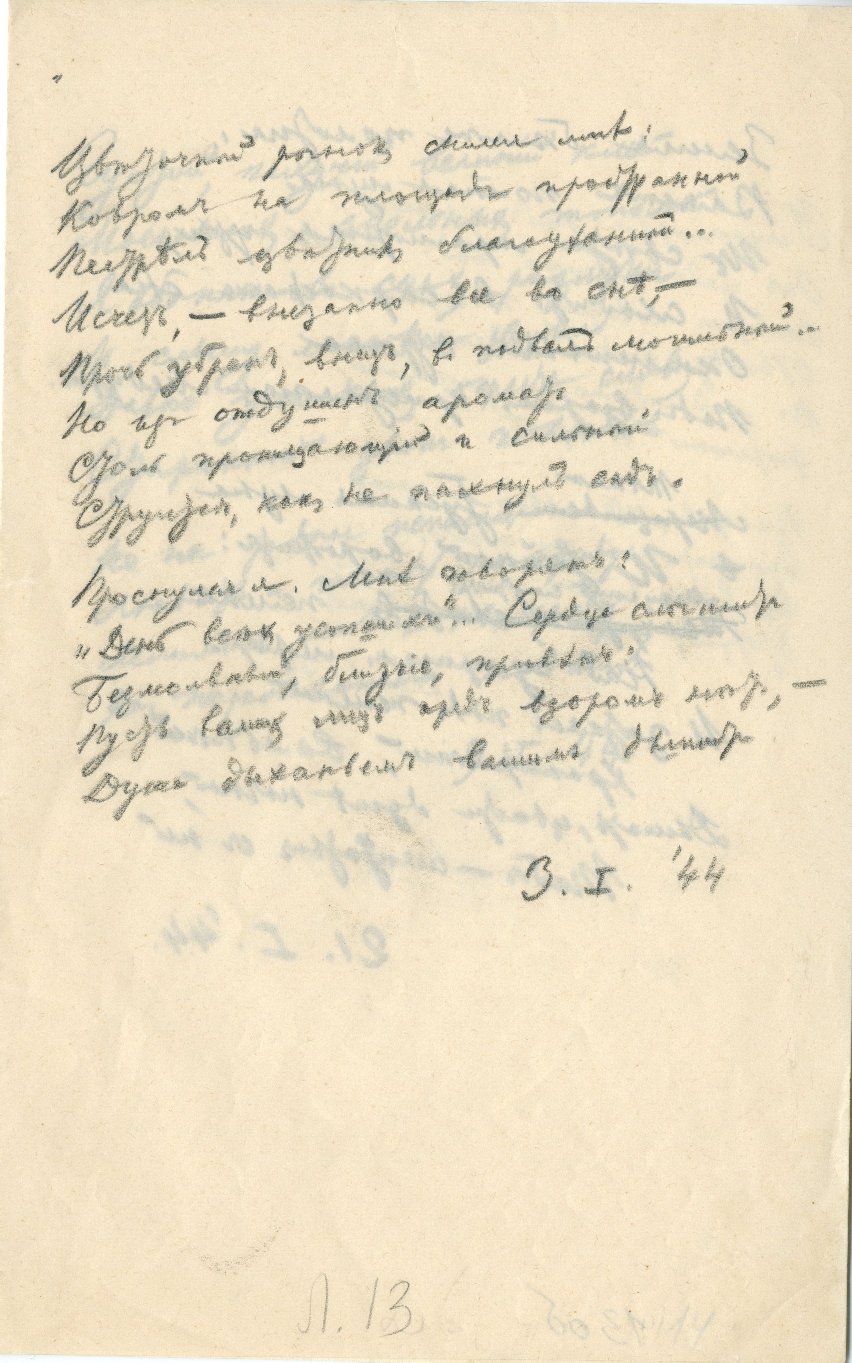 Цвѣточной рынокъ снился мнѣ:
Ковромъ на площади пространной
Пестрѣлъ цвѣтникъ благоуханной..
Исчезъ, — внезапно все во снѣ, —
Прочь убранъ, внизъ, въ подвалъ могильной..
Но изъ отдушинъ ароматъ
Столь проницающій и сильной
Струится, какъ не пахнулъ садъ.
Проснулся я. Мнѣ говорятъ:
„День всѣхъ усопшихъ"... Сердце слышитъ
Безмолвный, близкіе, привѣтъ:
Пусть вашихъ лицъ предъ взоромъ нѣтъ, —
Душа дыханьемъ вашимъ дышитъ
3. I. '44
Л. 13